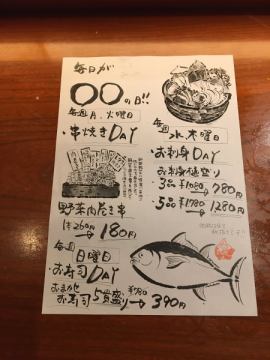 毎日が
〇〇の日!!
毎週月、火曜日
・串焼きDAY
野菜肉巻き串
1本260円→180円
毎週
水、木曜日
・お刺身DAY
お刺身桶盛り
3品¥1080→780円
5品¥1780→1280円
毎週
日曜日
・お寿司DAY
おまかせ
お寿司5貫盛り¥780→390円